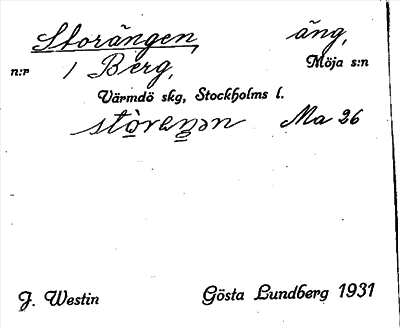 Storängen, äng,
n:r 1 Berg, Möja s:n
Värmdö skg, Stockholms l.
Ma 26
J. Westin Gösta Lundberg 1931